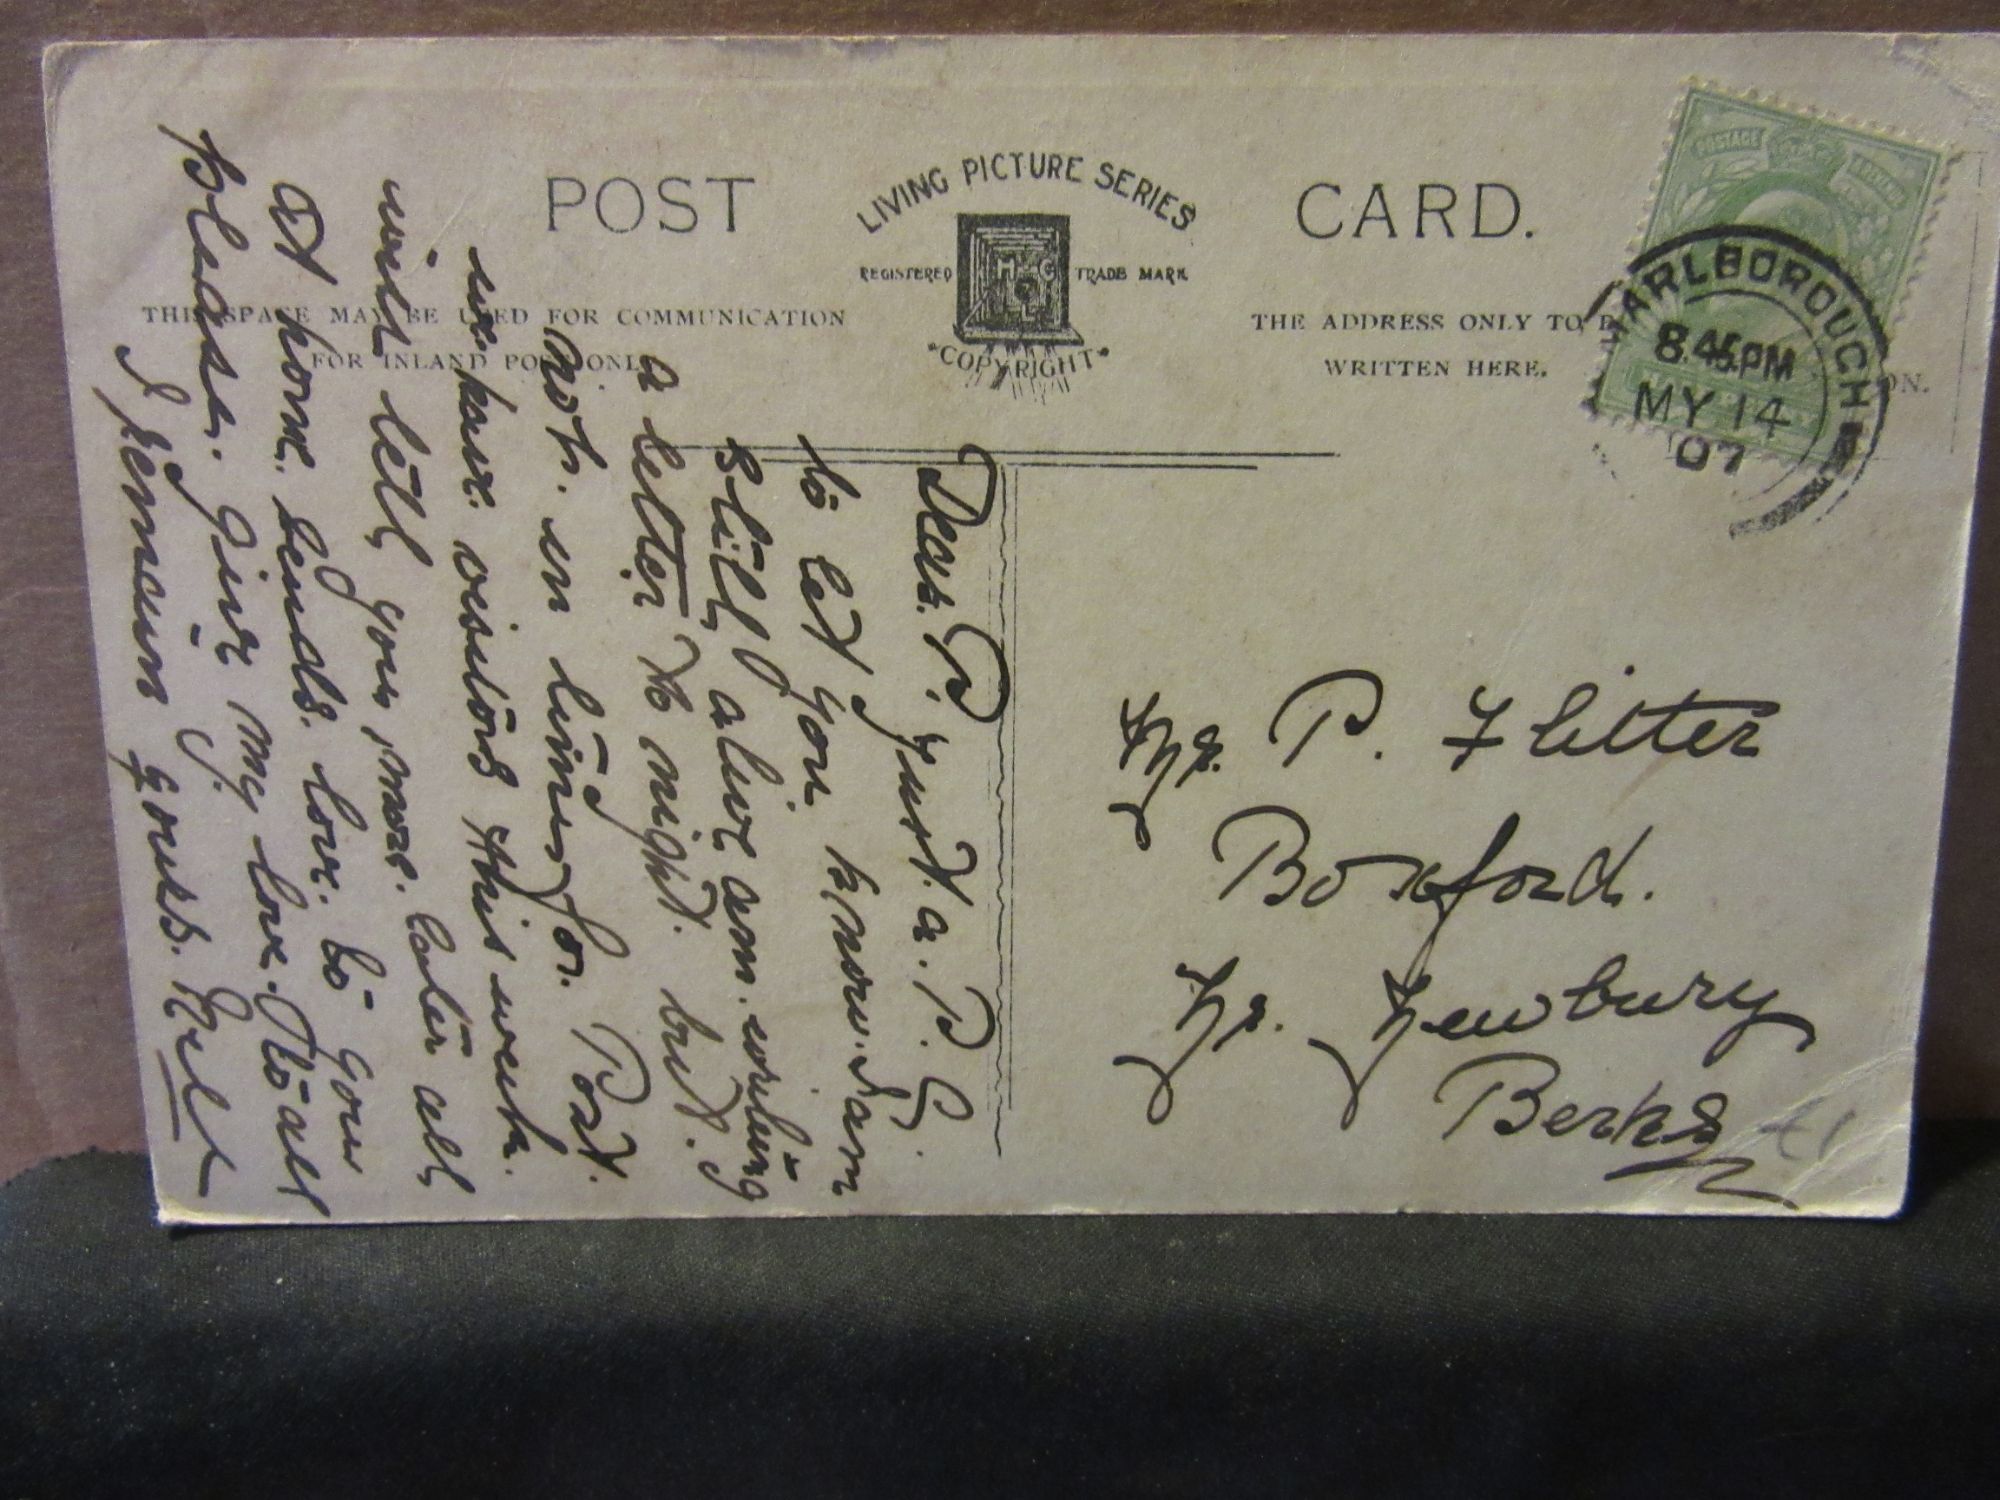 POST CARD.
LIVING PICTURE SERIES
REGISTERED TRADE MARK
"COPYRIGHT"
THIS SPACE MAY BE USED FOR COMMUNICATION
FOR INLAND POST ONLY
THE ADDRESS ONLY TO BE
WRITTEN HERE.
POSTAGE
MARLBOROUGH
8.45PM
MY 14
07
Dear. P. Just. a. P. C.
to let you know. I am
still alive am. writing
a letter to night. but. I
not. in time for. Post.
we have visitors this week.
will tell you more. later all
at home. sends. love. to you
please. give my love. to all
I remain yours.
Mr. P. Flitter
Boxford.
Nr. Newbury
Berks